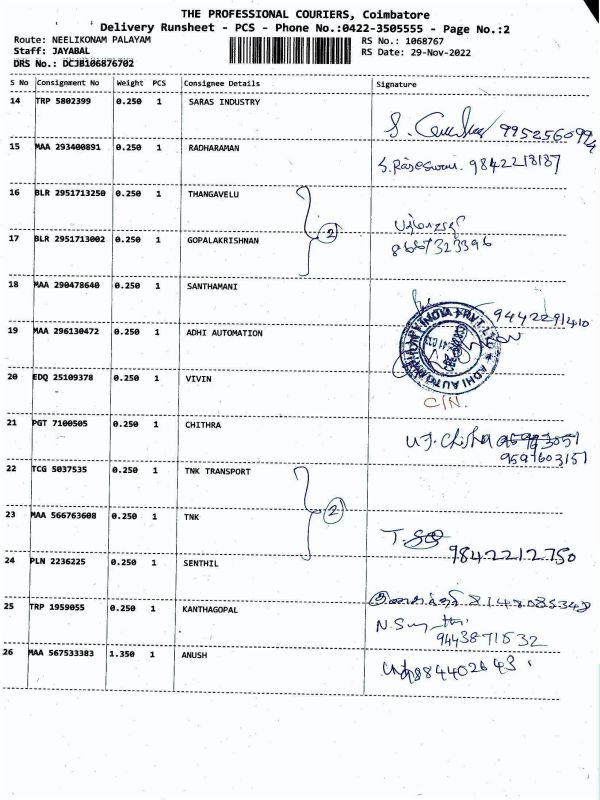 THE PROFESSIONAL COURIERS, Coimbatore
Delivery Runsheet - PCS - Phone No.:0422-3505555 - Page No.:2
Route: NEELIKONAM PALAYAM
Staff: JAYABAL
DRS No.: DCJB106876702
RS No.: 1068767
RS Date: 29-Nov-2022
S No Consignment No Weight PCS Consignee Details Signature
14 TRP 5802399 0.250 1 SARAS INDUSTRY
9952560994
15 MAA 293400891 0.250 1 RADHARAMAN
S. Rajeswari. 9842218187
16 BLR 2951713250 0.250 1 THANGAVELU
2
17 BLR 2951713002 0.250 1 GOPALAKRISHNAN
8667323396
18 MAA 290478640 0.250 1 SANTHAMANI
9442291410
19 MAA 296130472 0.250 1 ADHI AUTOMATION
20 EDQ 25109378 0.250 1 VIVIN
C/N.
21 PGT 7100505 0.250 1 CHITHRA
9597603151
22 TCG 5037535 0.250 1 TNK TRANSPORT
2
23 MAA 566763608 0.250 1 TNK
9842212750
24 PLN 2236225 0.250 1 SENTHIL
25 TRP 1959055 0.250 1 KANTHAGOPAL
9443871532
26 MAA 567533383 1.350 1 ANUSH